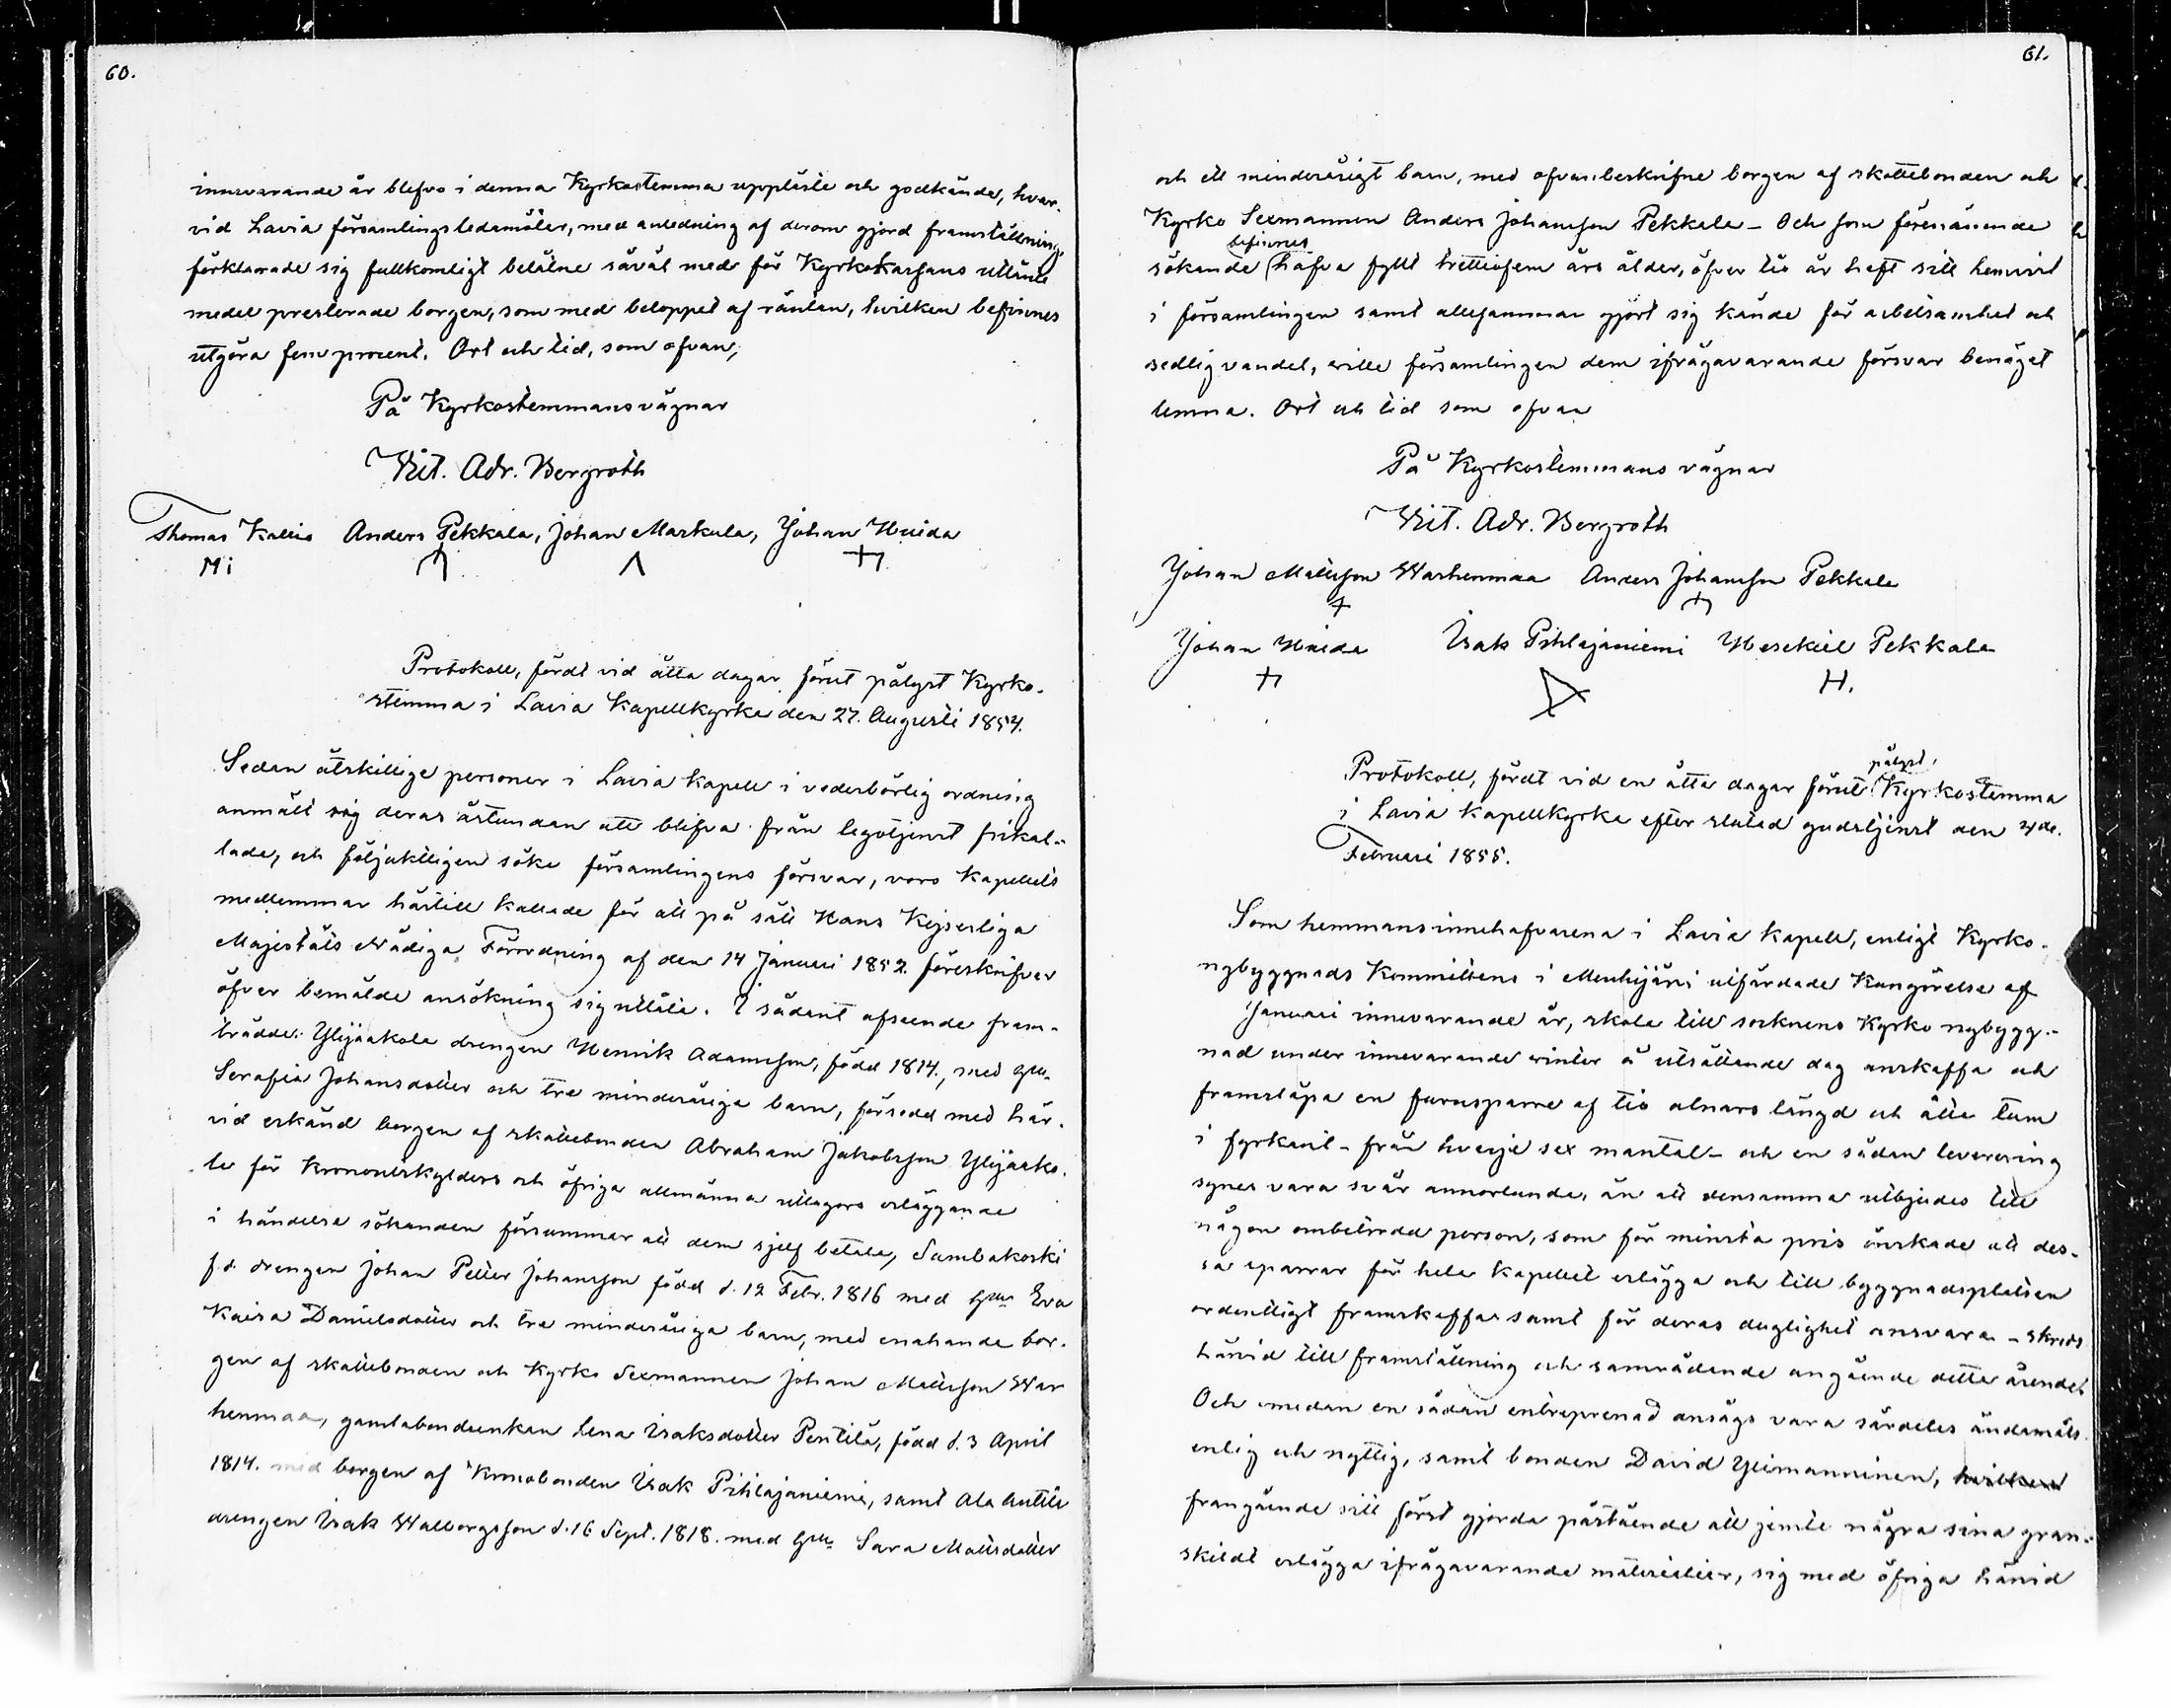 60.
innevarande år blefvo i denna Kyrkostemma uppläste och godkände, hvar-
vid Lavia församlings ledamöter, med anledning af derom gjord framställning,
förklarade sig fullkomligt belåtne såväl med för Kyrkokassans utlänte
medel presterade borgen, som med beloppet af räntan, hvilken befinnes
utgöra fem procent. Ort och tid, som ofvan,
På Kyrkostemmans vägnar
Vict. Adr. Bergroth
Thomas Kallio Anders Pekkala, Johan Markula, Johan Huida
Mi
Protokoll, fördt vid åtta dagar förut pålyst Kyrko-
stemma i Lavia Kapellkyrka den 27. Augusti 1854.
Sedan åtskillige personer i Lavia Kapell i vederbörlig ordning
anmält sig deras åstundan att blifva från legotjenst frikal-
lade, och följaktligen söka församlingens försvar, voro Kapellets
medlemmar härtill kallade för att på sätt Hans Kejserliga
Majestäts Nådiga Förordning af den 14 Januari 1852. föreskrifver
öfver bemälde ansökning sig utlåta. I sådant afseende fram-
trädde: Ylijaakola drengen Henrik Adamsson, född 1814., med hu.
Serafia Johansdotter och tre minderåriga barn, försedd med här-
vid erkänd borgen af skattebonden Abraham Jakobsson Ylijaako-
la för Kronoutskylders och öfriga allmänna utlagors erläggande
i händelse sökanden försummar att dem sjelf betala, Sambakoski
f.d. drengen Johan Petter Johansson född d. 12 Febr. 1816 med hu. Eva
Kaisa Danielsdotter och tre minderåriga barn, med enahanda bor-
gen af skattebonden och Kyrko Sexmannen Johan Mattsson War
henmaa, gamlabondeenkan Lena Isaksdotter Pentilä, född d. 3 April
1814. med borgen af Kronobonden Isak Pihlajaniemi, samt Ala Antila
drengen Isak Walborgsson d. 16 Sept. 1818. med hu. Sara Mattsdotter
61.
och ett minderårigt barn, med ofvanbeskrifne borgen af skattebonden och
Kyrko Sexmannen Anders Johansson Pekkala – Och som förenämnde
befinnes
sökande hafva fyllt trettiofem års ålder, öfver tio år haft sitt hemvist
i församlingen samt allesammans gjort sig kände för arbetsamhet och
sedlig vandel, wille församlingen dem ifrågavarande försvar benäget
lemna. Ort och tid som ofvan
På Kyrkostemmans vägnar
Vict. Adr. Bergroth
Johan Mattsson Warhenmaa Anders Johansson Pekkala
Johan Huida Isak Pihlajaniemi Hesekiel Pekkala
H.
pålyst,
Protokoll, fördt vid en åtta dagar förut Kyrkostemma
i Lavia Kapellkyrka efter slutad gudstjenst den 4de.
Februari 1855.
Som hemmansinnehafvarena i Lavia Kapell, enligt Kyrko-
nybyggnads Kommittens i Mouhijärvi utfärdade Kungörelse af
Januari innevarande år, skola till socknens Kyrko nybygg-
nad under innevarande winter å utsättande dag anskaffa och
framsläpa en furusparre af tio alnars längd och åtta tum
i fyrkant – från hvarje sex mantal – och en sådan leverering
synes vara svår annorlunda, än att densamma utbjudes till
någon ombetrodd person, som för minsta pris önskade att des-
sa sparrar för hela Kapellet erlägga och till byggnadsplatsen
ordentligt framskaffa samt för deras duglighet ansvara – skreds
härvid till framställning och samrådande angående detta ärende.
Och emedan en sådan entreprenad ansågs vara särdeles ändamåls-
enlig och nyttig, samt bonden David Ylimanninen, hvilken
frangående sitt först gjorda påstående att jemte några sina gran-
skildt erlägga ifrågavarande materialier, sig med öfriga härvid